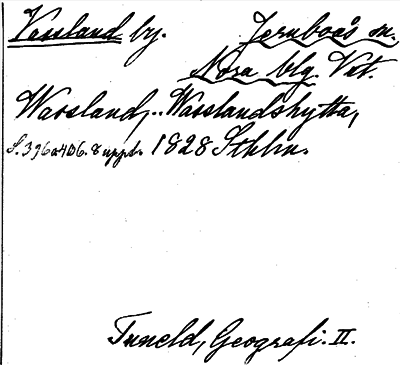 Vassland by. Jernboås sn.
Nora blg. Vstm.
Warsland, .. Wasslandshytta,
S. 396 o 406. 8 uppl. 1828 Sthlm.
Tuneld, Geografi. II.